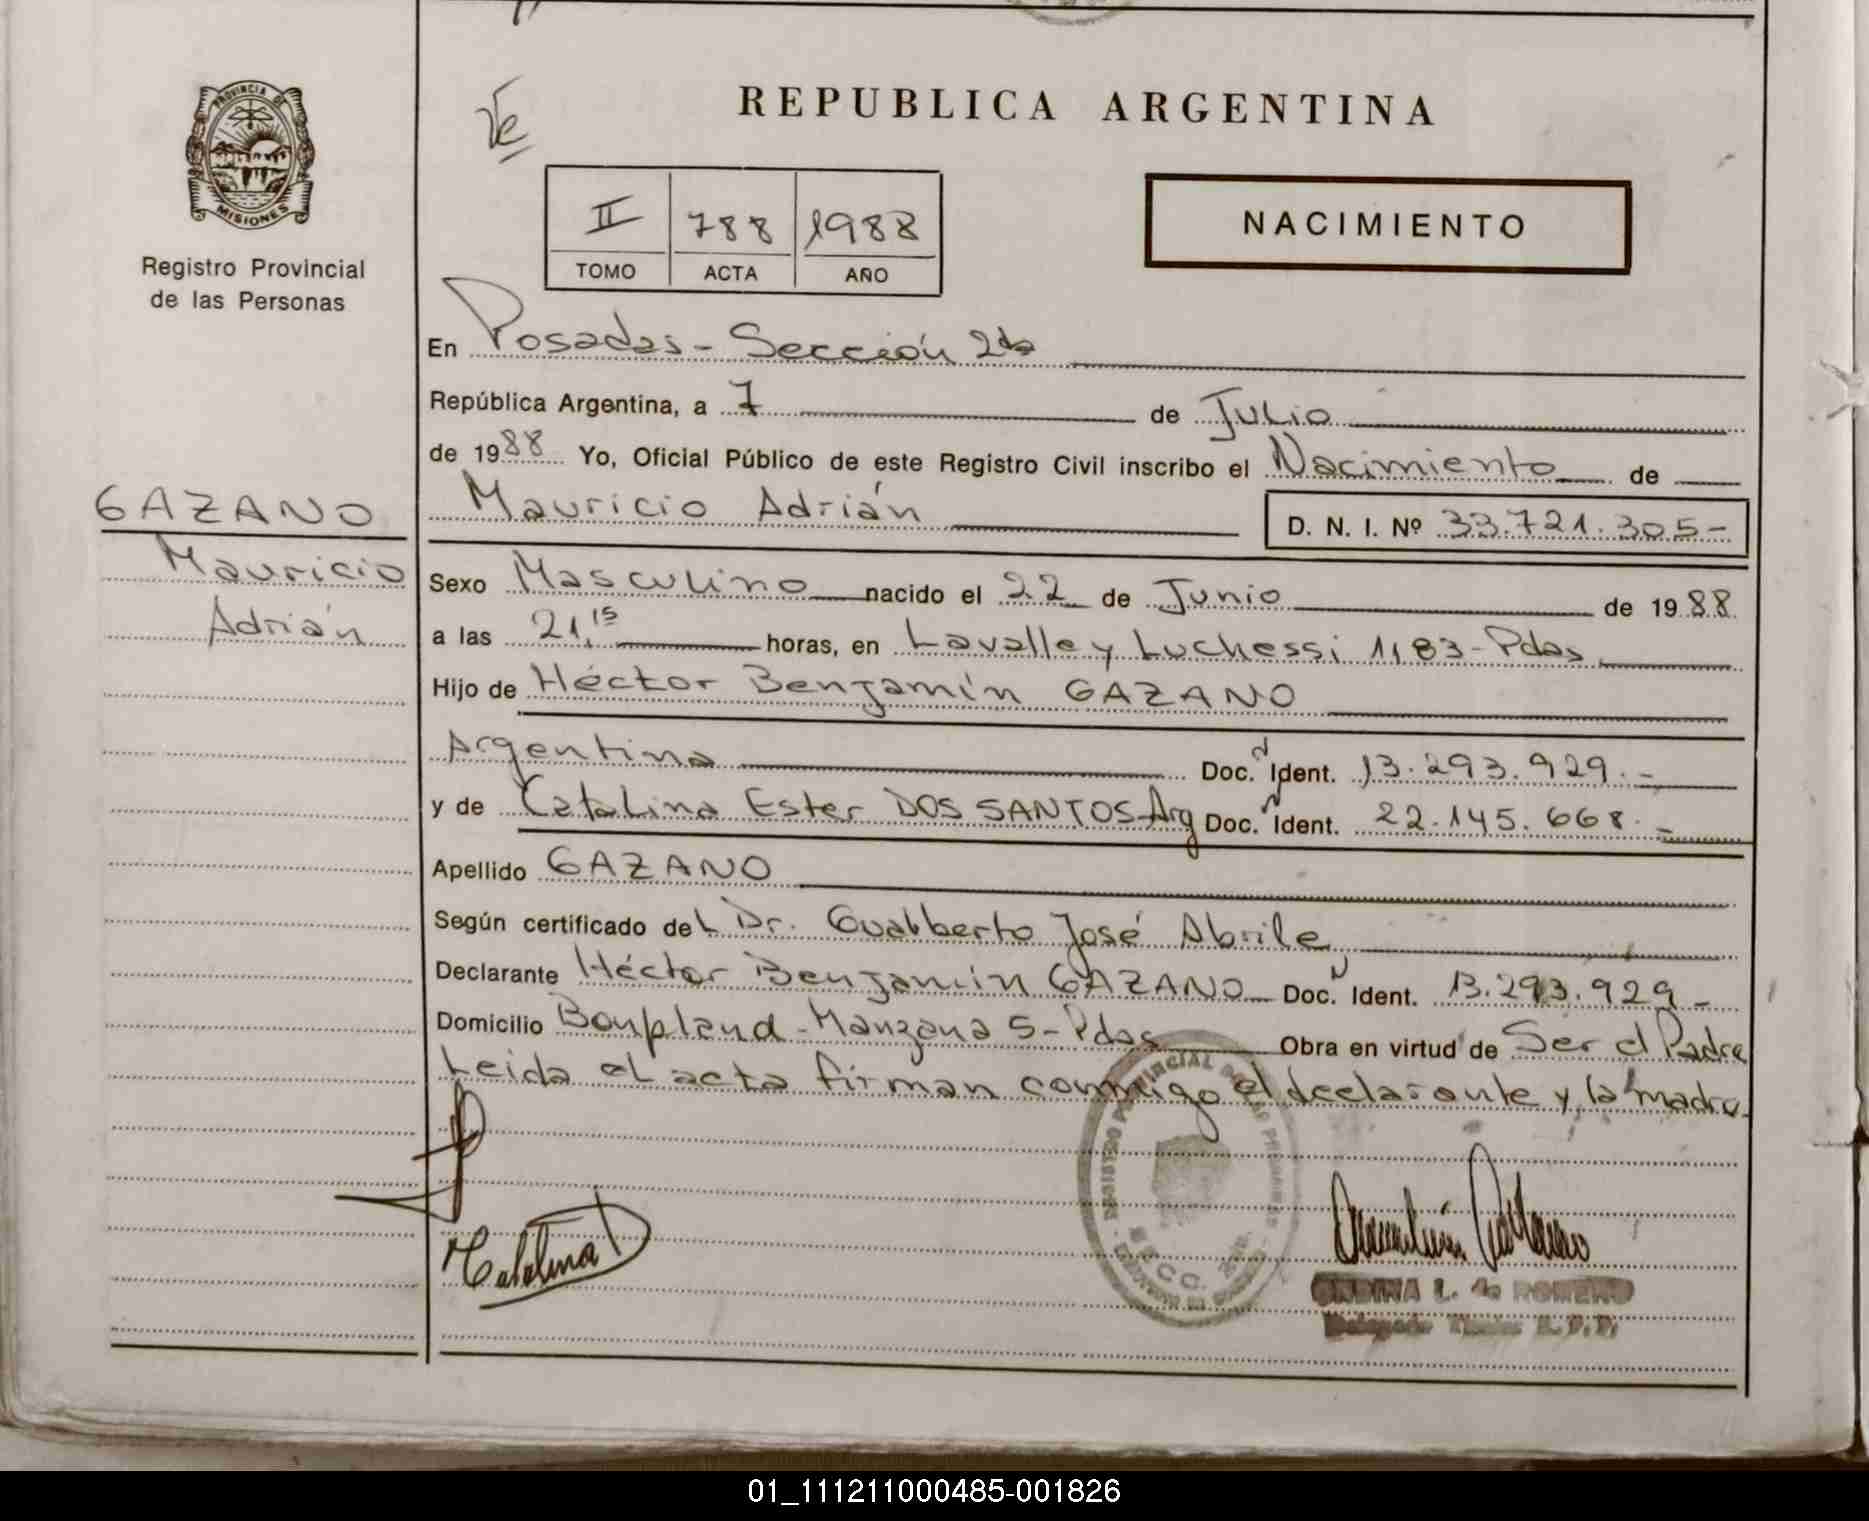 PROVINCIA DE
MISIONES
Registro Provincial
de las Personas
GAZANO
Mauricio
Adrián
REPUBLICA ARGENTINA
II 788 1988
TOMO ACTA AÑO
NACIMIENTO
En Posadas - Sección 2da
República Argentina, a 7 de Julio
de 1988 Yo, Oficial Público de este Registro Civil inscribo el Nacimiento de
Mauricio Adrián D. N. I. Nº 33.721.305-
Sexo Masculino nacido el 22 de Junio de 1988
a las 21,15 horas, en Lavalle y Luchessi 1183 - Pdas
Hijo de Héctor Benjamín GAZANO
Argentina Doc. Ident. 13.293.929.-
y de Catalina Ester DOS SANTOS-Arg Doc. Ident. 22.145.668.-
Apellido GAZANO
Según certificado del Dr. Gualberto José Abrile
Declarante Héctor Benjamín GAZANO Doc. Ident. 13.293.929-
Domicilio Boupland - Manzana 5 - Pdas Obra en virtud de Ser el Padre
Leida el acta firman conmigo el declarante y la madre.
Catalina D
ONDINA L. de ROMERO
01_111211000485-001826